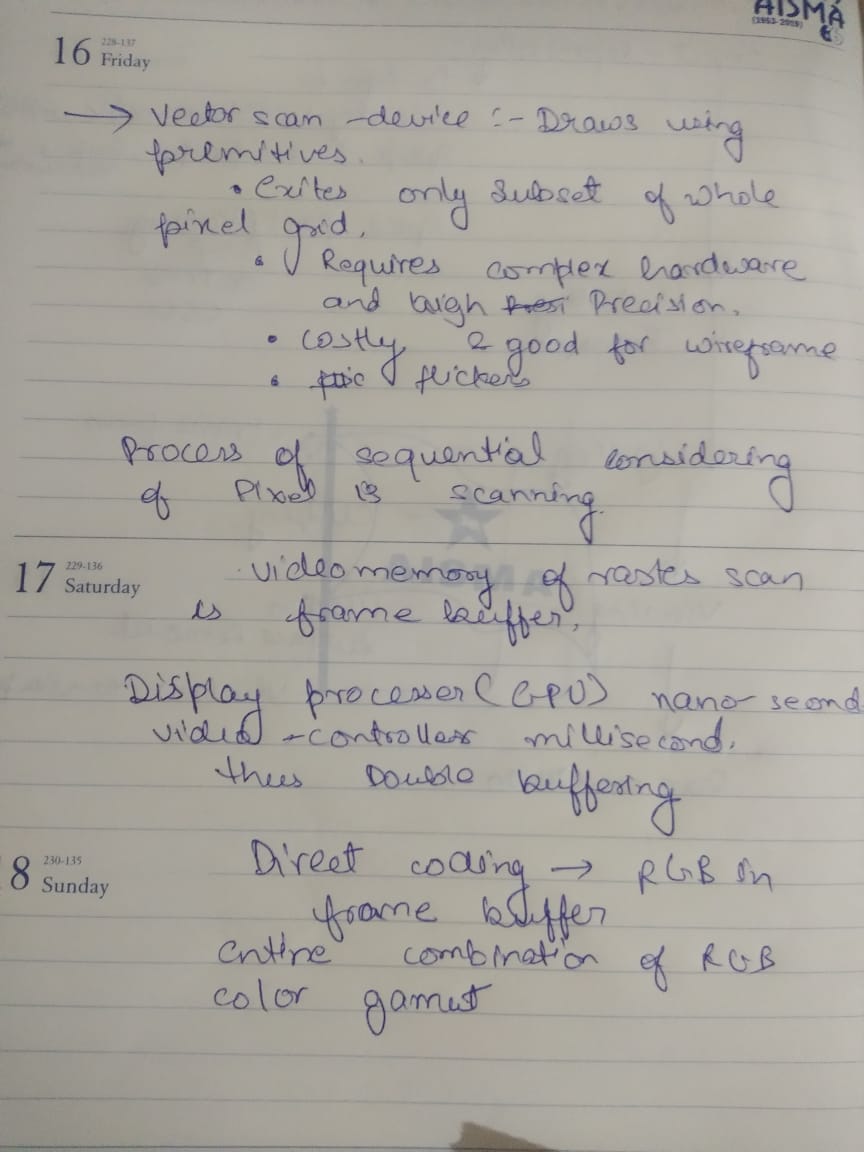 AISMA
(1953-2003)
16 228-137 Friday
→ Vector scan -device :- Draws using
premitives.
• Exites only subset of whole
pixel grid.
• Requires complex hardware
and high Precision.
• costly & good for wireframe
• flickers
Process of sequential considering
of Pixel is scanning.
17 229-136 Saturday
videomemory of raster scan
is frame buffer.
Display processer (GPU) nano-seond
video -controller millisecond.
thus Double buffering
8 230-135 Sunday
Direct coding → RGB in
frame buffer
entire combination of RGB
color gamut